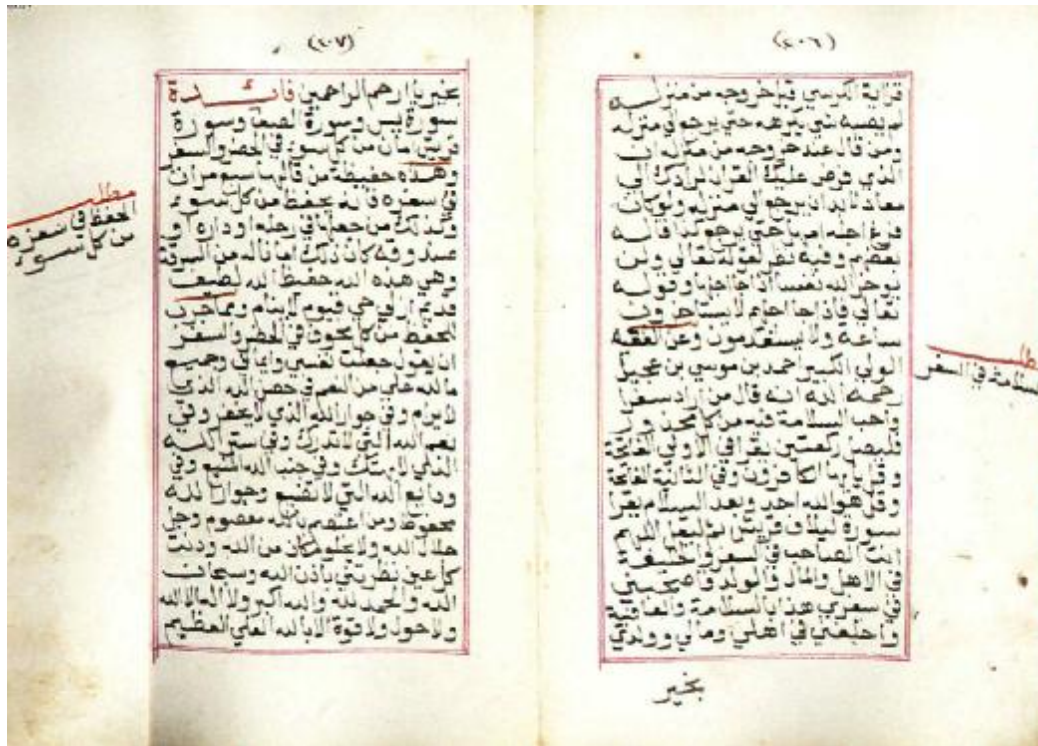 (٢٠٦)
قراية الكرسي قبل خروجه من منزله
لم يصبه شي يكرهه حتي يرجع الي منزله
ومن قال عند خروجه من منزله ان
الذي فرض عليك القران لرادك الي
معاد لابد ان يرجع الي منزله ولو كان
فرغ اجله امهل حتي يرجع كذا قاله
بعضهم وفيه نظر لقوله تعالي ولن
يوخر الله نفسا اذا جا اجلها وقوله
تعالي فاذا جا اجلهم لا يستاخرون
ساعة ولا يستقدمون وعن الفقيه
الولي الكبير احمد بن موسي بن عجيل
رحمه الله انه قال من اراد سفرا
واحب السلامة فيه من كل محذور
فليصل ركعتين يقرا في الاولي الفاتحة
وقل يا ايها الكافرون وفي الثانية الفاتحة
وقل هو الله احد وبعد السلام يقرا
سورة ليلاف قريش ثم ليقل اللهم
انت الصاحب في السفر والخليفة
في الاهل والمال والولد فاصحبني
في سفري هذا بالسلامة والعافية
واخلفني في اهلي ومالي وولدي
بخير
السلامة في السفر
(٢٠٧)
بخير يا ارحم الراحمين فائدة
سورة يس وسورة الصف وسورة
قريش امان من كل سوء في الحضر والسفر
وهذه حفيظة من قالها سبع مرات
في سفره فانه يحفظ من كل سوء
وكذلك من جعلها في رحله او داره او
صندوقه كان ذلك امانا له من السرقة
وهي هذه الله حفيظ الله لطيف
قديم ازلي حي قيوم لا ينام ومما جرب
للحفظ من كل مخوف في الحضر والسفر
ان يقول جعلت نفسي وايماني وجميع
ما لله علي من النعم في حصن الله الذي
لا يرام وفي جوار الله الذي لا يخفر وفي
نعم الله التي لا تدرك وفي ستر الله
الذي لا يهتك وفي جنب الله المنيع وفي
ودايع الله التي لا تضيع وجوار الله
محفوظ ومن اعتصم بالله معصوم وجل
جلال الله ولا يخلو مكان من الله ودنت
كل عين نظرتني باذن الله وسبحان
الله والحمد لله والله اكبر ولا اله الا الله
ولا حول ولا قوة الا بالله العلي العظيم
مطلب
الحفظ في سفره
من كل سوء